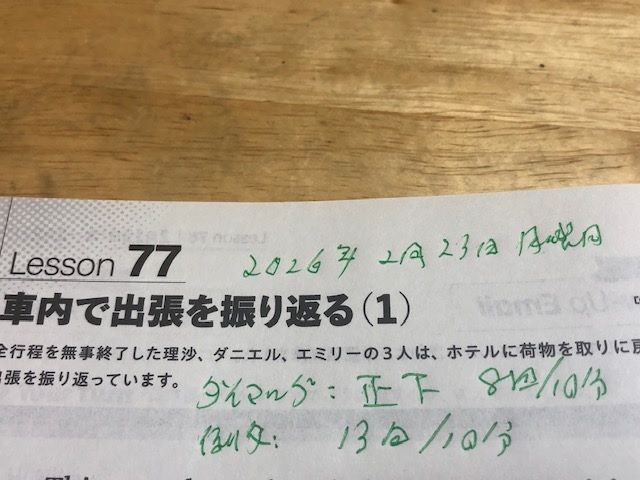 Lesson 77
2026年 2月 23日 月曜日
車内で出張を振り返る(1)
全行程を無事終了した理沙、ダニエル、エミリーの3人は、ホテルに荷物を取りに戻
出張を振り返っています。
ダイアログ: 正下 8回/10分
13回/10分